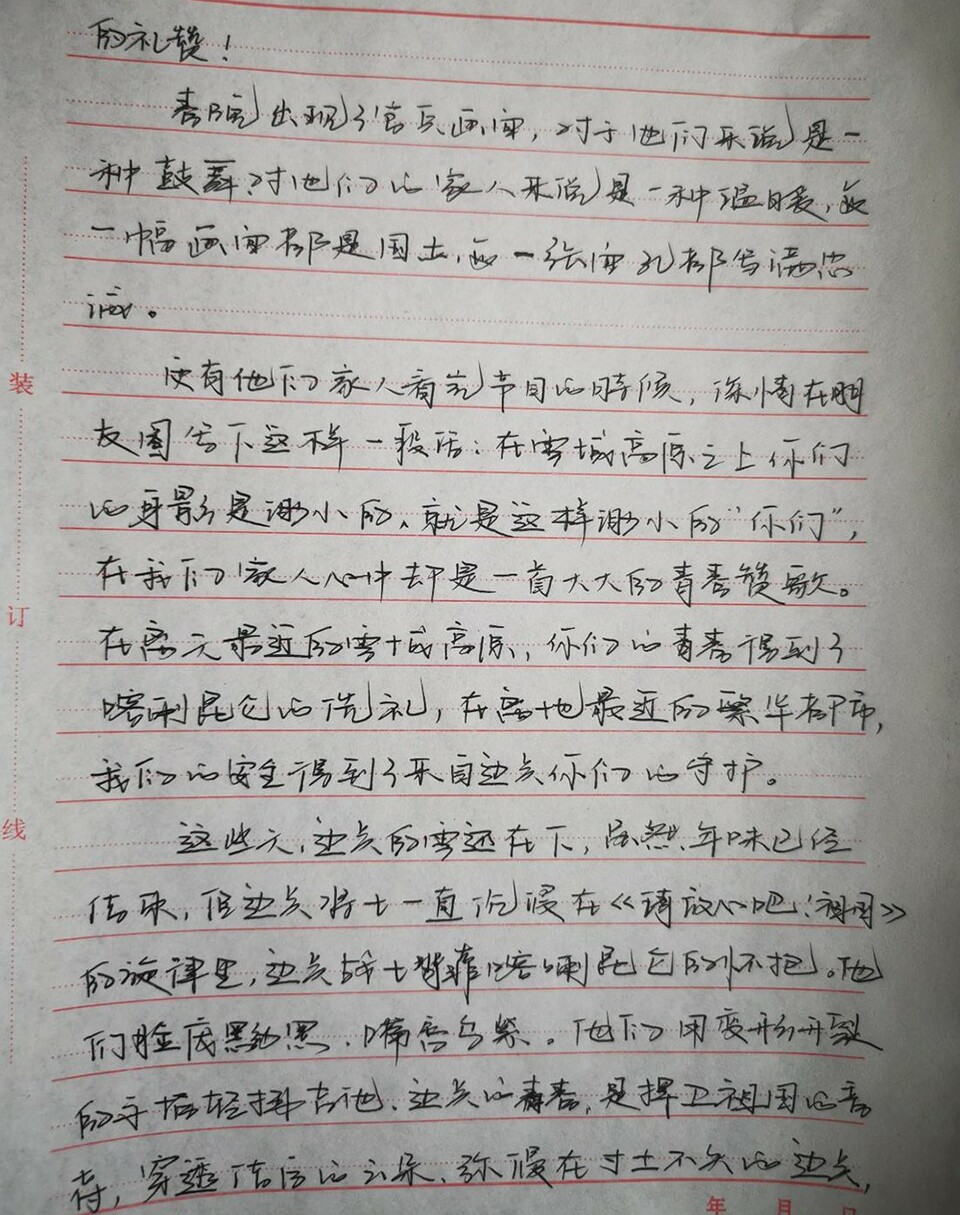 的礼赞！
春晚出现了官兵画面，对于他们来说是一
种鼓舞、对他们的家人来说是一种温暖，每
一幅画面都是国土，每一张面孔都写满忠
诚。
更有他们家人看完节目的时候，深情在朋
友圈写下这样一段话：在雪域高原之上你们
的身影是渺小的，就是这样渺小的“你们”，
在我们家人心中却是一首大大的青春赞歌。
在离天最近的雪域高原，你们的青春得到了
喀喇昆仑的洗礼，在离地最近的繁华都市，
我们的安全得到了来自边关你们的守护。
这些天，边关的雪还在下，虽然年味已经
结束，但边关将士一直沉浸在《请放心吧！祖国》
的旋律里，边关战士背靠喀喇昆仑的怀抱。他
们脸庞黝黑、嘴唇乌紫。他们用变形开裂
的手指轻弹吉他、边关的青春，是捍卫祖国的音
符，穿透洁白的云朵、弥漫在寸土不失的边关，
装
订
线
年 月 日